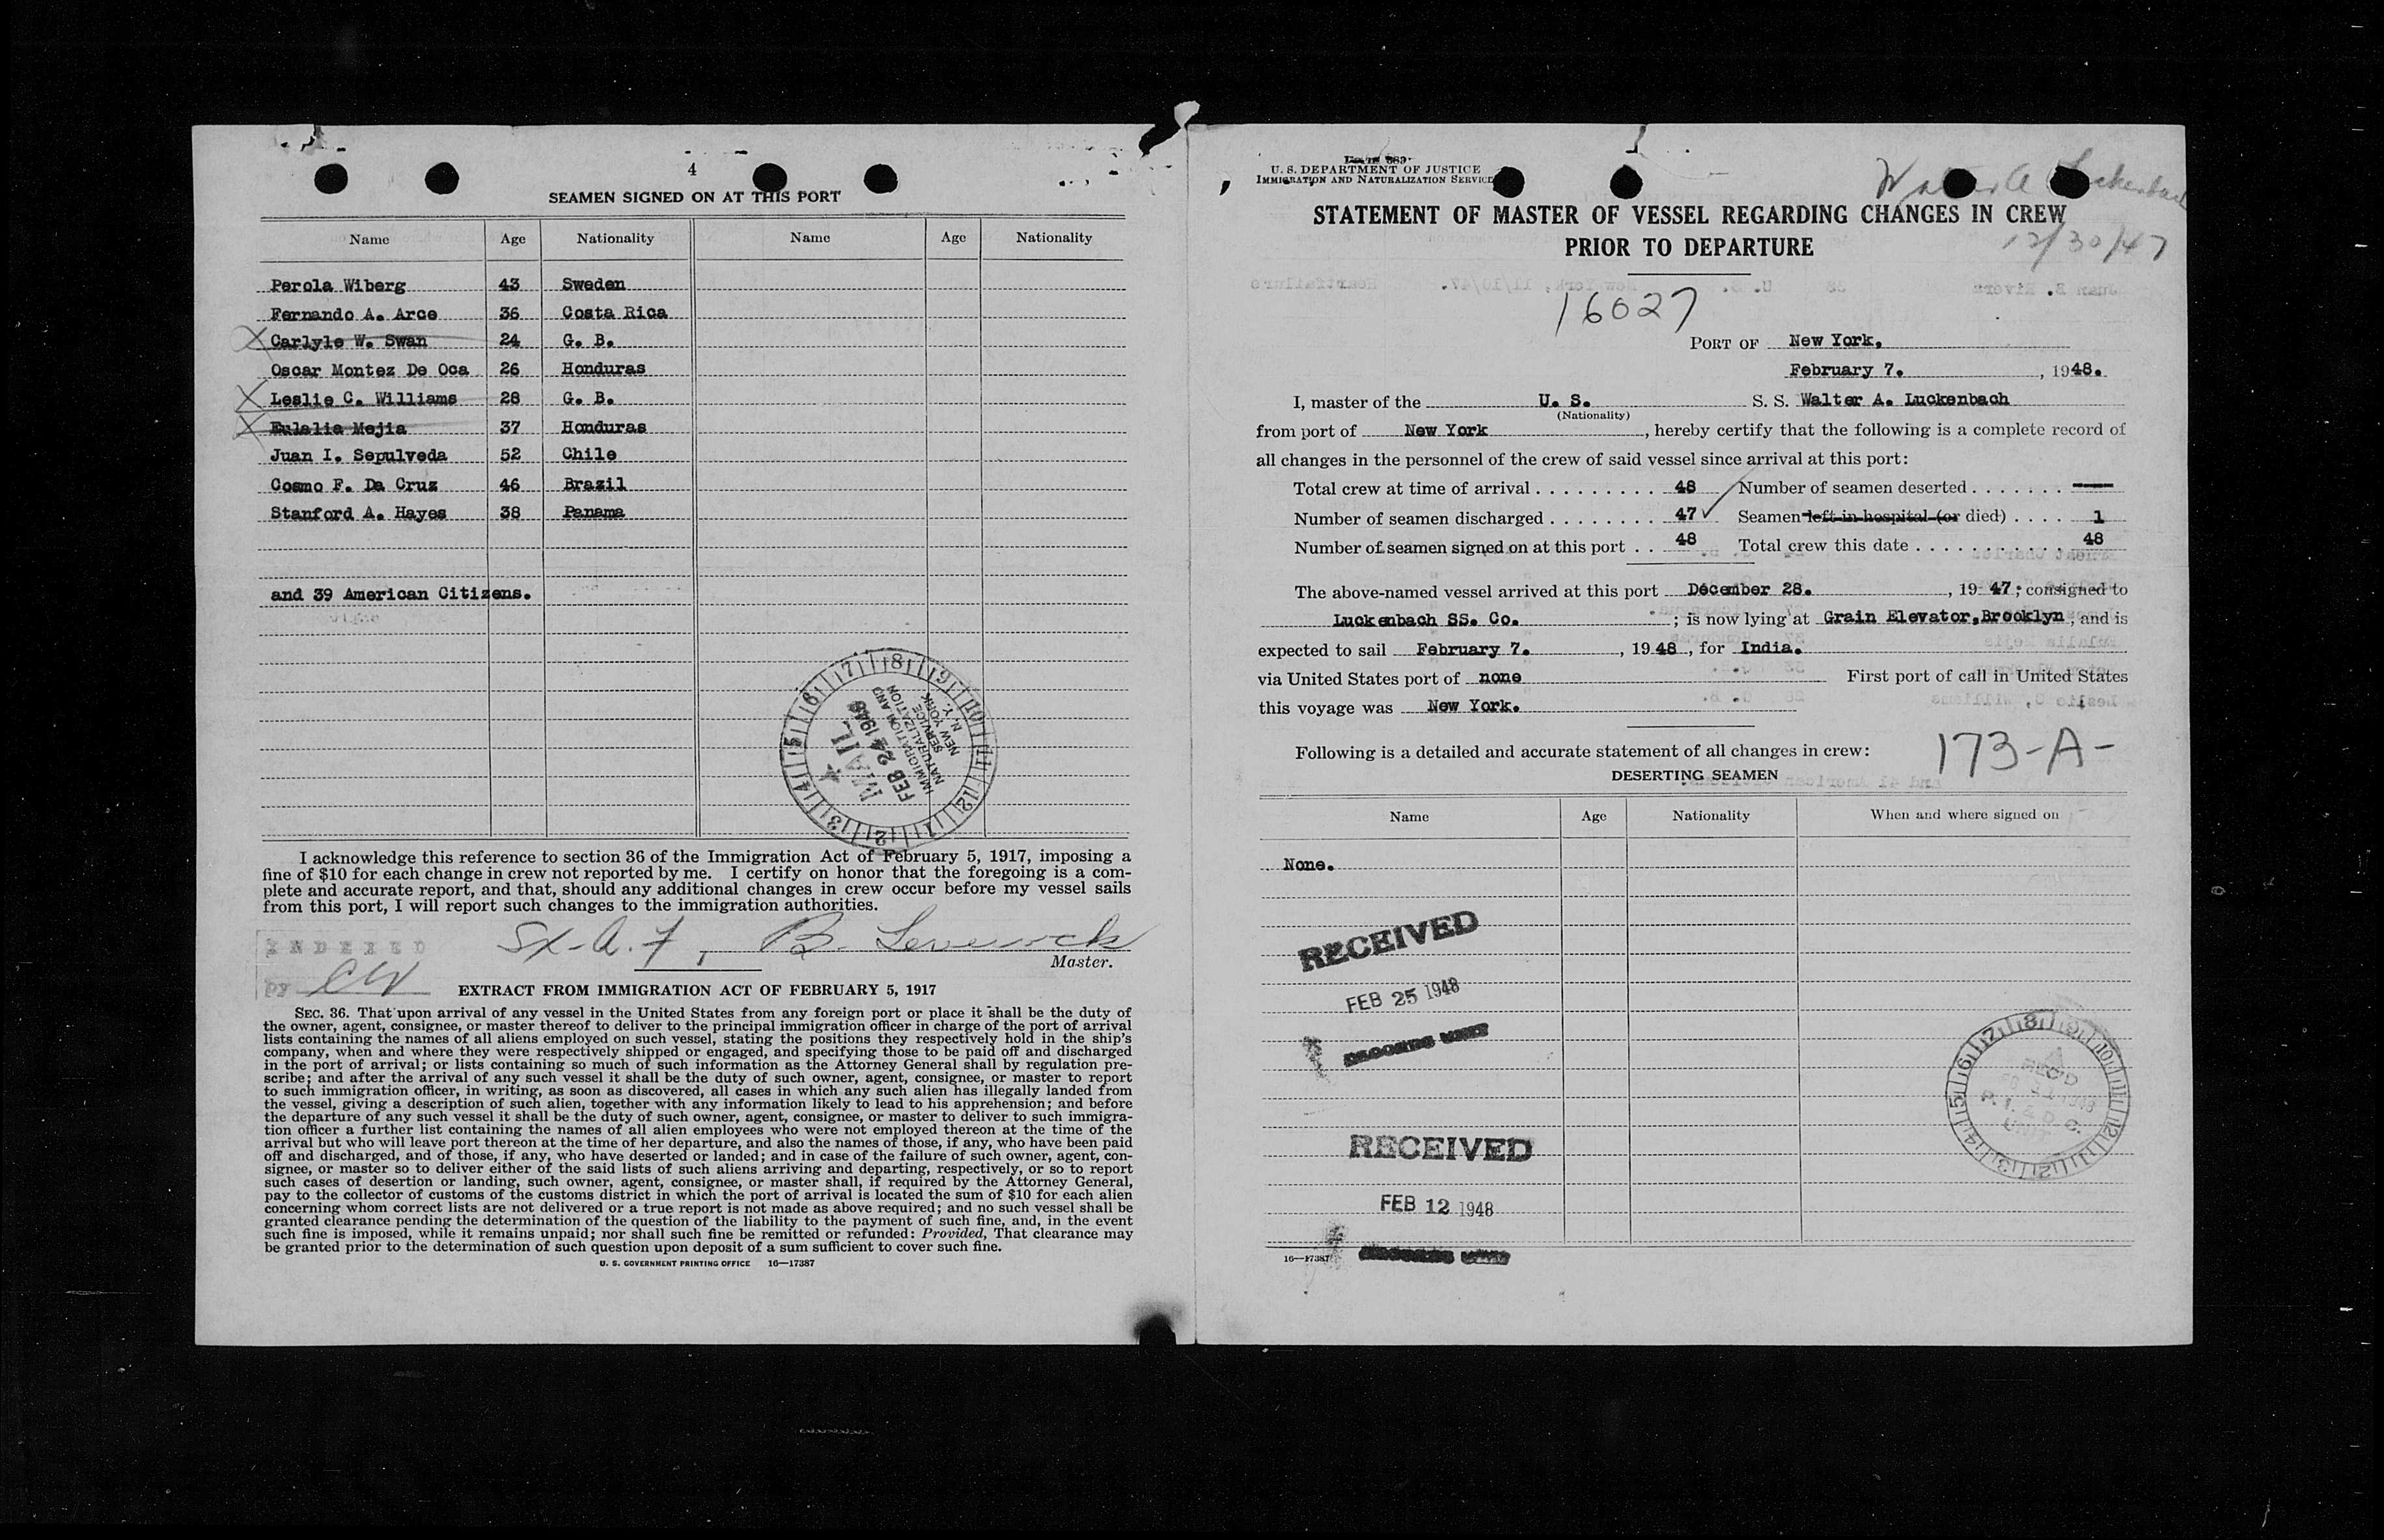 4
SEAMEN SIGNED ON AT THIS PORT
Name Age Nationality Name Age Nationality
Perola Wiberg 43 Sweden
Fernando A. Arce 36 Costa Rica
X Carlyle W. Swan 24 G. B.
Oscar Montez De Oca 26 Honduras
X Leslie C. Williams 28 G. B.
X Eulalia Mejia 37 Honduras
Juan I. Sepulveda 52 Chile
Cosmo F. Da Cruz 46 Brazil
Stanford A. Hayes 38 Panama
and 39 American Citizens.
MAIL
FEB 24 1948
IMMIGRATION AND
NATURALIZATION
SERVICE
NEW YORK
N. Y.
1 2 3 4 5 6 7 8 9 10 11 12
I acknowledge this reference to section 36 of the Immigration Act of February 5, 1917, imposing a
fine of $10 for each change in crew not reported by me. I certify on honor that the foregoing is a com-
plete and accurate report, and that, should any additional changes in crew occur before my vessel sails
from this port, I will report such changes to the immigration authorities.
INDEXED
by CW
B.
Master.
EXTRACT FROM IMMIGRATION ACT OF FEBRUARY 5, 1917
SEC. 36. That upon arrival of any vessel in the United States from any foreign port or place it shall be the duty of
the owner, agent, consignee, or master thereof to deliver to the principal immigration officer in charge of the port of arrival
lists containing the names of all aliens employed on such vessel, stating the positions they respectively hold in the ship's
company, when and where they were respectively shipped or engaged, and specifying those to be paid off and discharged
in the port of arrival; or lists containing so much of such information as the Attorney General shall by regulation pre-
scribe; and after the arrival of any such vessel it shall be the duty of such owner, agent, consignee, or master to report
to such immigration officer, in writing, as soon as discovered, all cases in which any such alien has illegally landed from
the vessel, giving a description of such alien, together with any information likely to lead to his apprehension; and before
the departure of any such vessel it shall be the duty of such owner, agent, consignee, or master to deliver to such immigra-
tion officer a further list containing the names of all alien employees who were not employed thereon at the time of the
arrival but who will leave port thereon at the time of her departure, and also the names of those, if any, who have been paid
off and discharged, and of those, if any, who have deserted or landed; and in case of the failure of such owner, agent, con-
signee, or master so to deliver either of the said lists of such aliens arriving and departing, respectively, or so to report
such cases of desertion or landing, such owner, agent, consignee, or master shall, if required by the Attorney General,
pay to the collector of customs of the customs district in which the port of arrival is located the sum of $10 for each alien
concerning whom correct lists are not delivered or a true report is not made as above required; and no such vessel shall be
granted clearance pending the determination of the question of the liability to the payment of such fine, and, in the event
such fine is imposed, while it remains unpaid; nor shall such fine be remitted or refunded: Provided, That clearance may
be granted prior to the determination of such question upon deposit of a sum sufficient to cover such fine.
U. S. GOVERNMENT PRINTING OFFICE 16—17387
U. S. DEPARTMENT OF JUSTICE
IMMIGRATION AND NATURALIZATION SERVICE
Walter A Luckenbach
STATEMENT OF MASTER OF VESSEL REGARDING CHANGES IN CREW
PRIOR TO DEPARTURE
12/30/47
16027
PORT OF New York,
February 7. , 1948.
I, master of the U. S. S. S. Walter A. Luckenbach
(Nationality)
from port of New York , hereby certify that the following is a complete record of
all changes in the personnel of the crew of said vessel since arrival at this port:
Total crew at time of arrival . . . . . . . . . 48 Number of seamen deserted . . . . . . . —
Number of seamen discharged . . . . . . . . 47 Seamen left in hospital (or died) . . . . 1
Number of seamen signed on at this port . . 48 Total crew this date . . . . . . . . . . 48
The above-named vessel arrived at this port December 28. , 19 47; consigned to
Luckenbach SS. Co. ; is now lying at Grain Elevator, Brooklyn, and is
expected to sail February 7. , 19 48 , for India.
via United States port of none First port of call in United States
this voyage was New York.
Following is a detailed and accurate statement of all changes in crew:
173-A-
DESERTING SEAMEN
Name Age Nationality When and where signed on
None.
RECEIVED
FEB 25 1948
RECORDS UNIT
REC'D
1948
1 2 3 4 5 6 7 8 9 10 11 12
RECEIVED
FEB 12 1948
16—17387